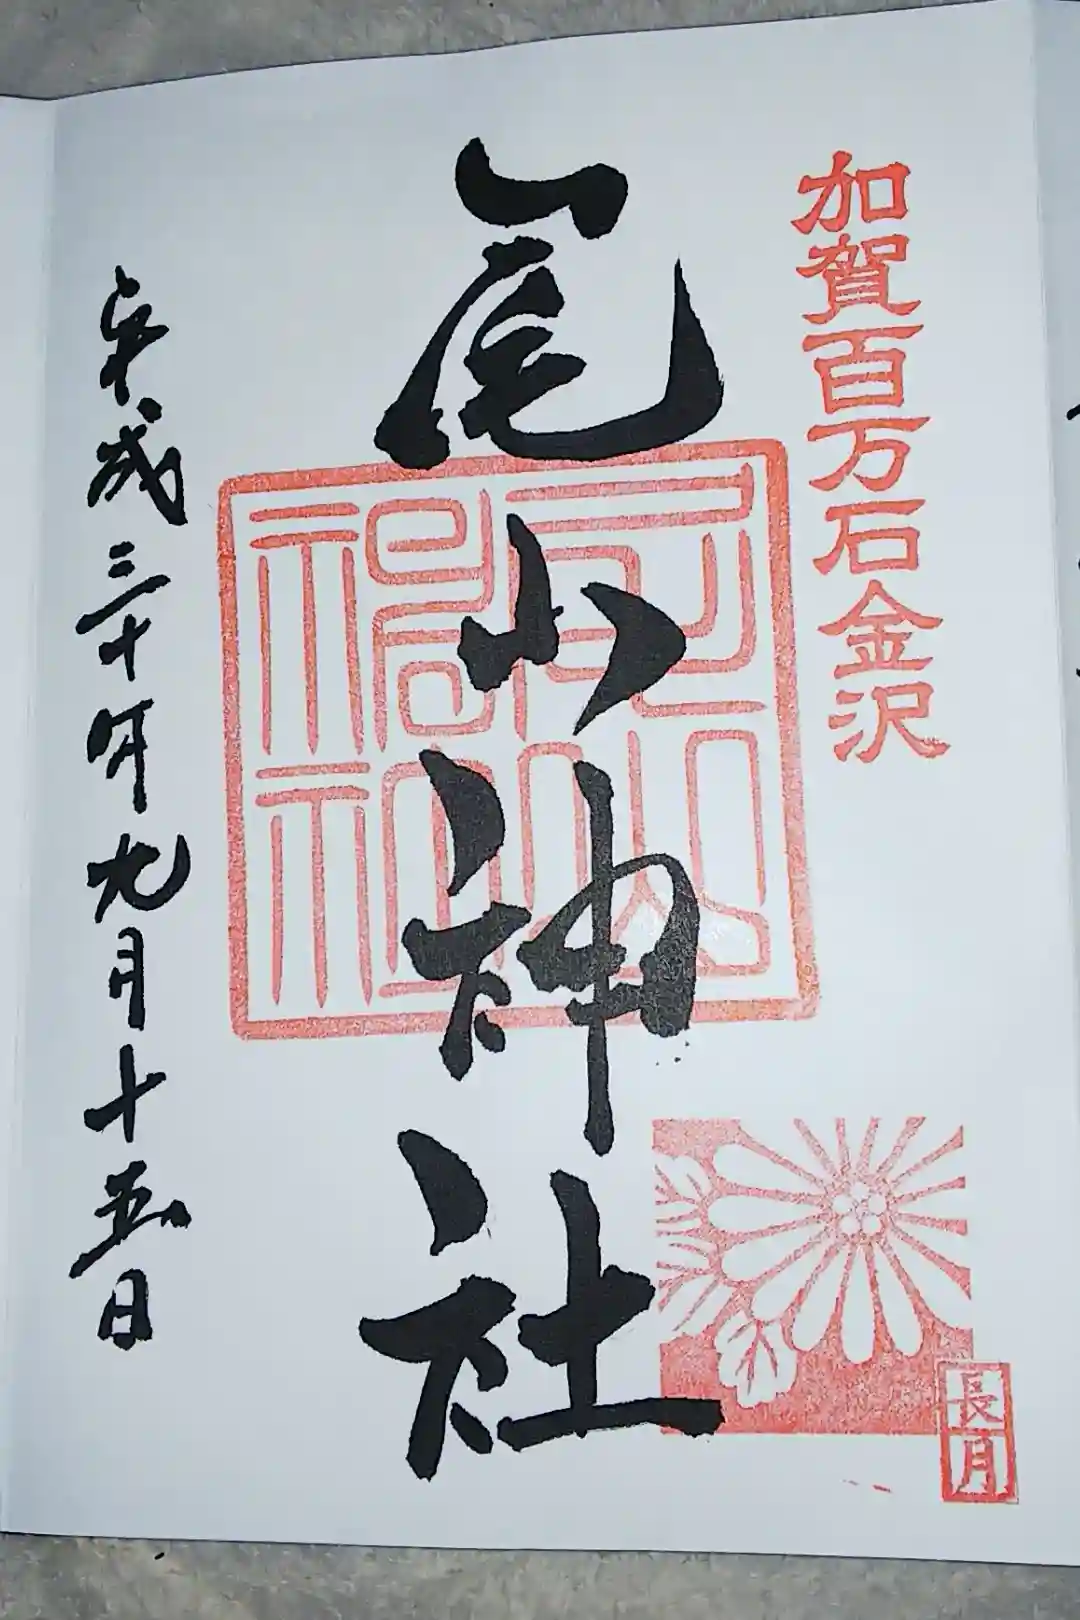 加賀百万石金沢
尾山神社
平成三十年九月十五日
長月